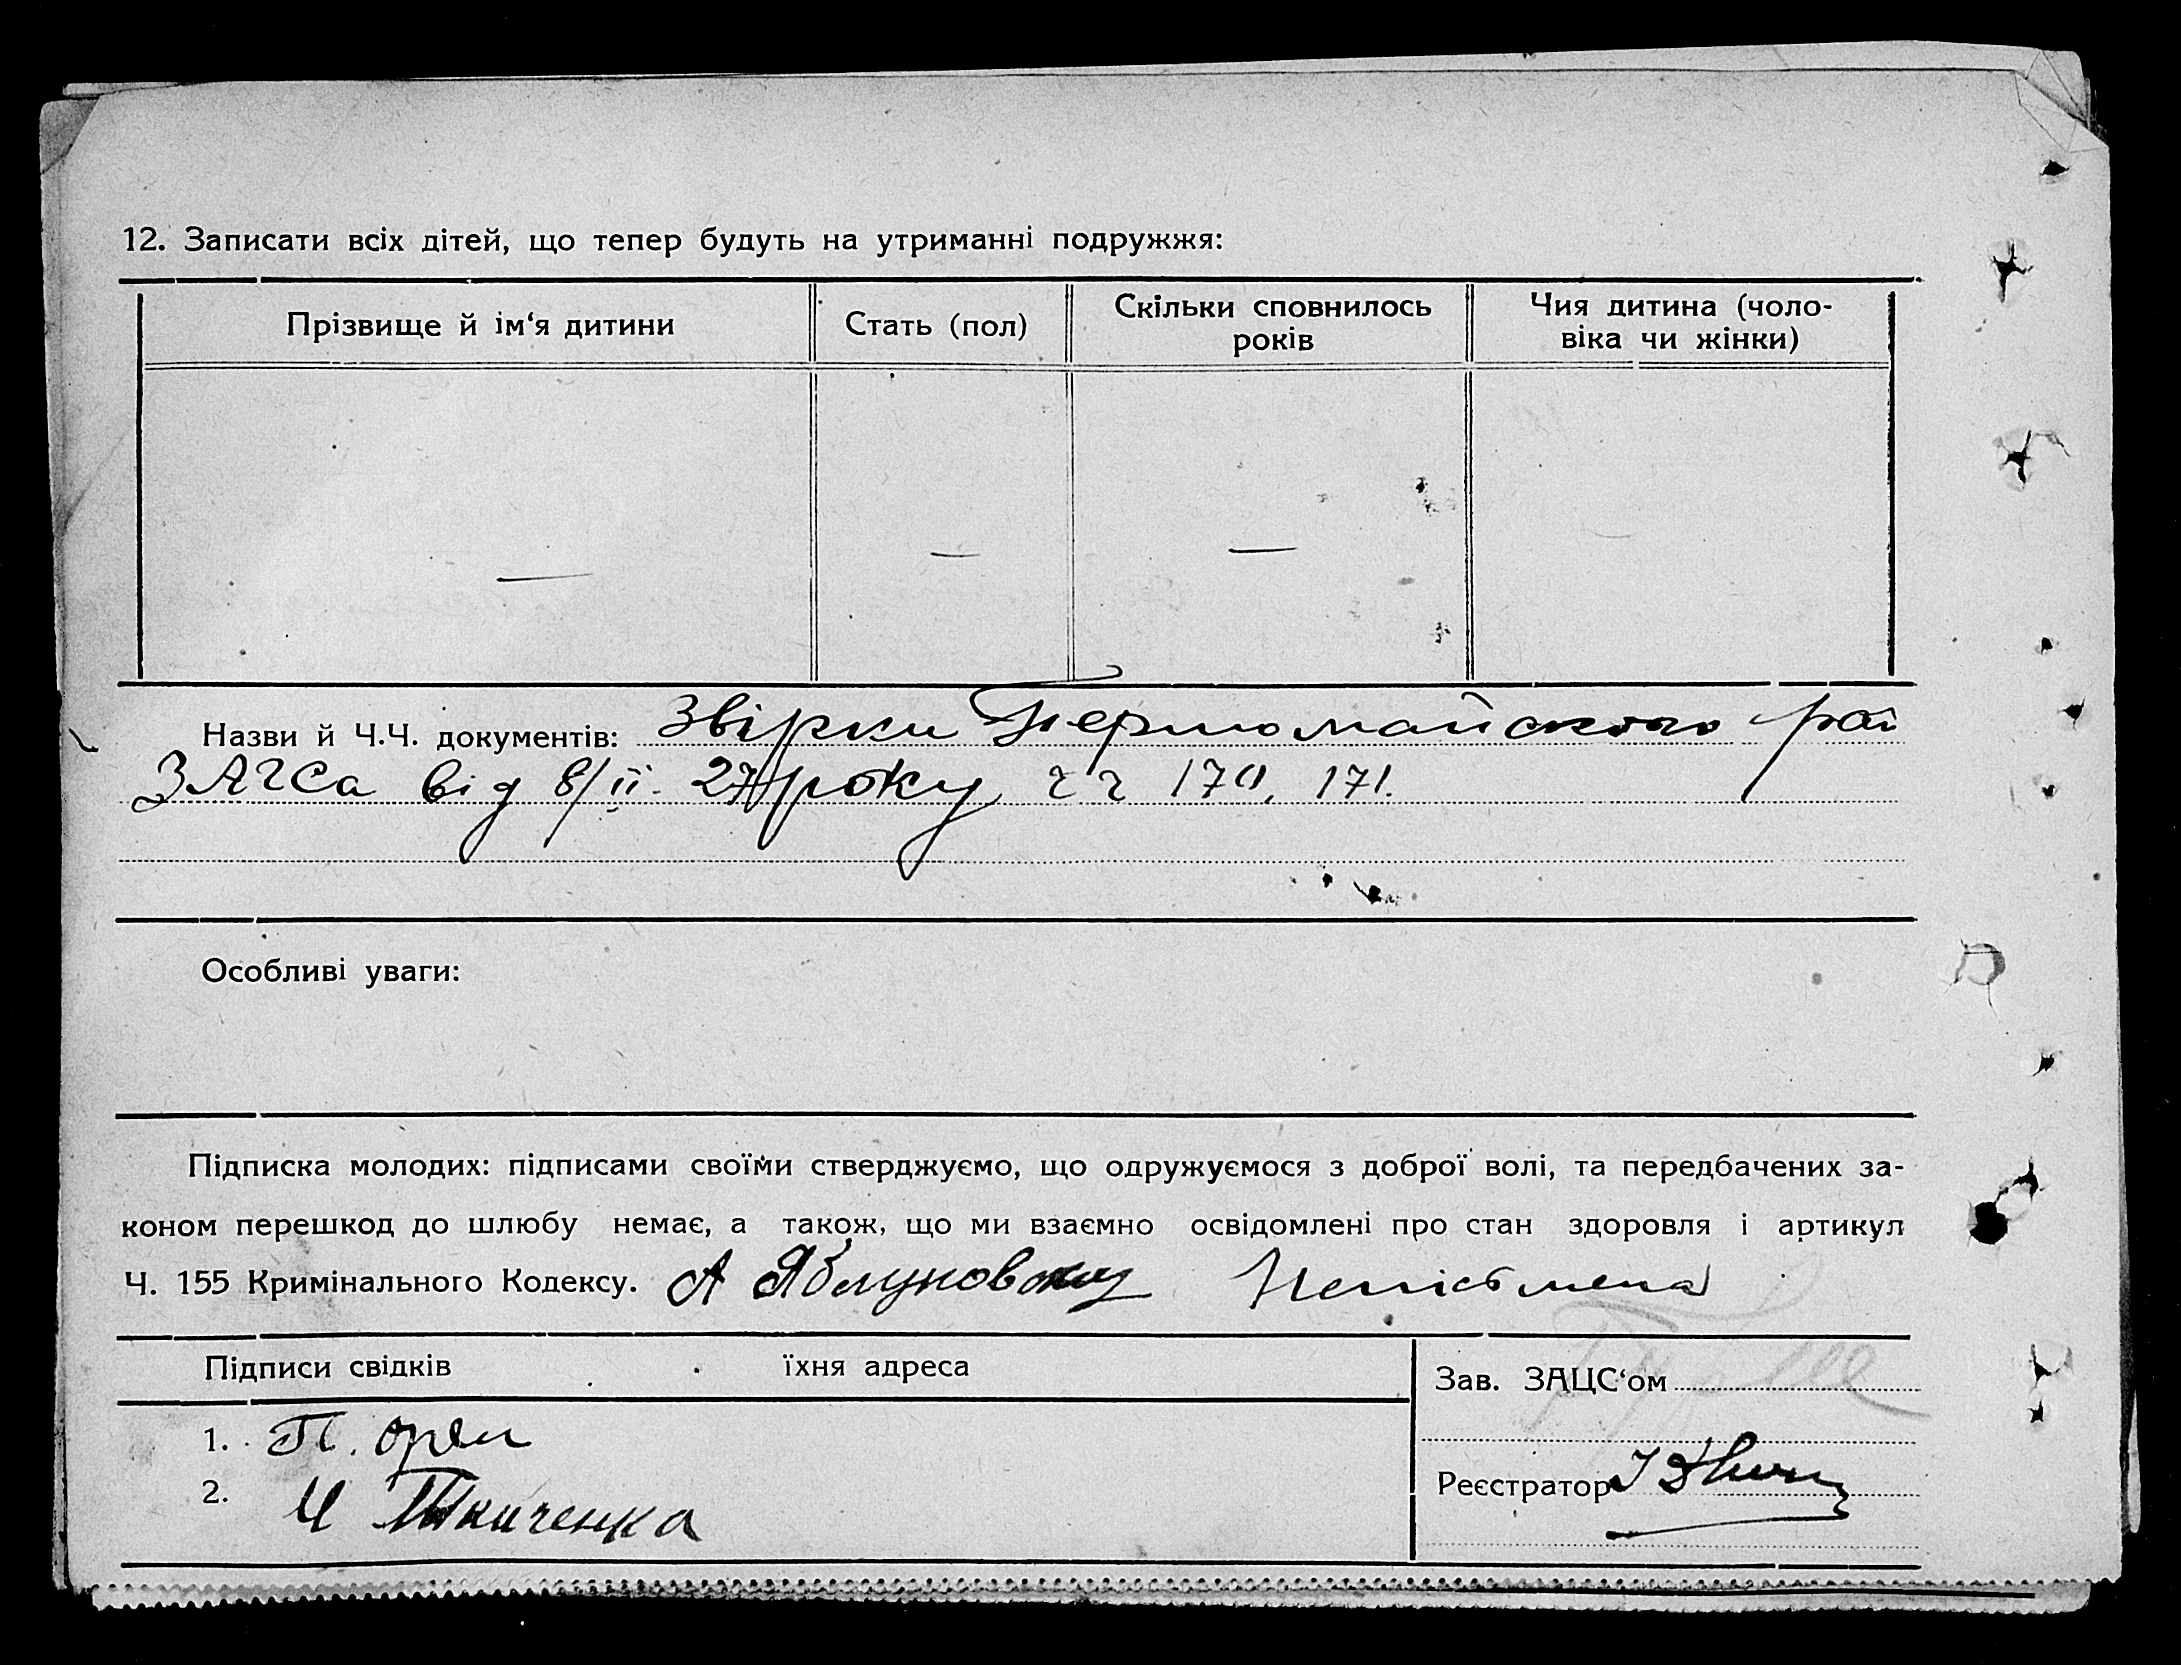 12. Записати всіх дітей, що тепер будуть на утриманні подружжя:
Прізвище й ім‘я дитини
Стать (пол)
Скільки сповнилось
років
Чия дитина (чоло-
віка чи жінки)
— — —
Назви й Ч.Ч. документів: Звірки Первомайского рай
ЗАГСа від 8/II. 27 року ч ч 170, 171.
Особливі уваги:
Підписка молодих: підписами своїми стверджуємо, що одружуємося з доброї волі, та передбачених за-
коном перешкод до шлюбу немає, а також, що ми взаємно освідомлені про стан здоровля і артикул
Ч. 155 Кримінального Кодексу. А Яблуновský Неписьмена
Підписи свідків їхня адреса
Зав. ЗАЦС‘ом
1. П. Орел
2. Ч Ткаченка
Реєстратор